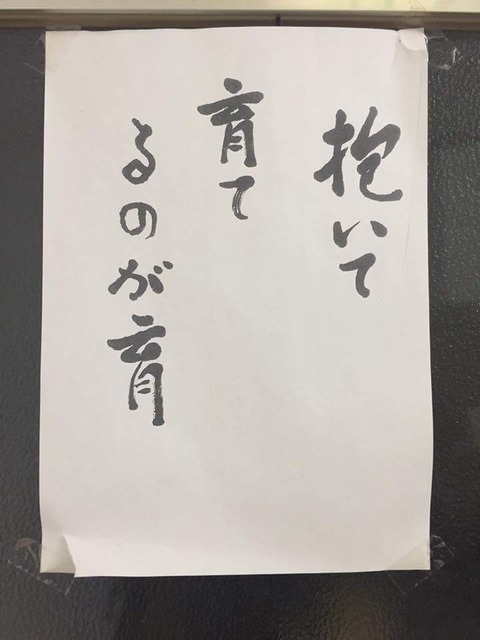 抱いて
育て
るのが育